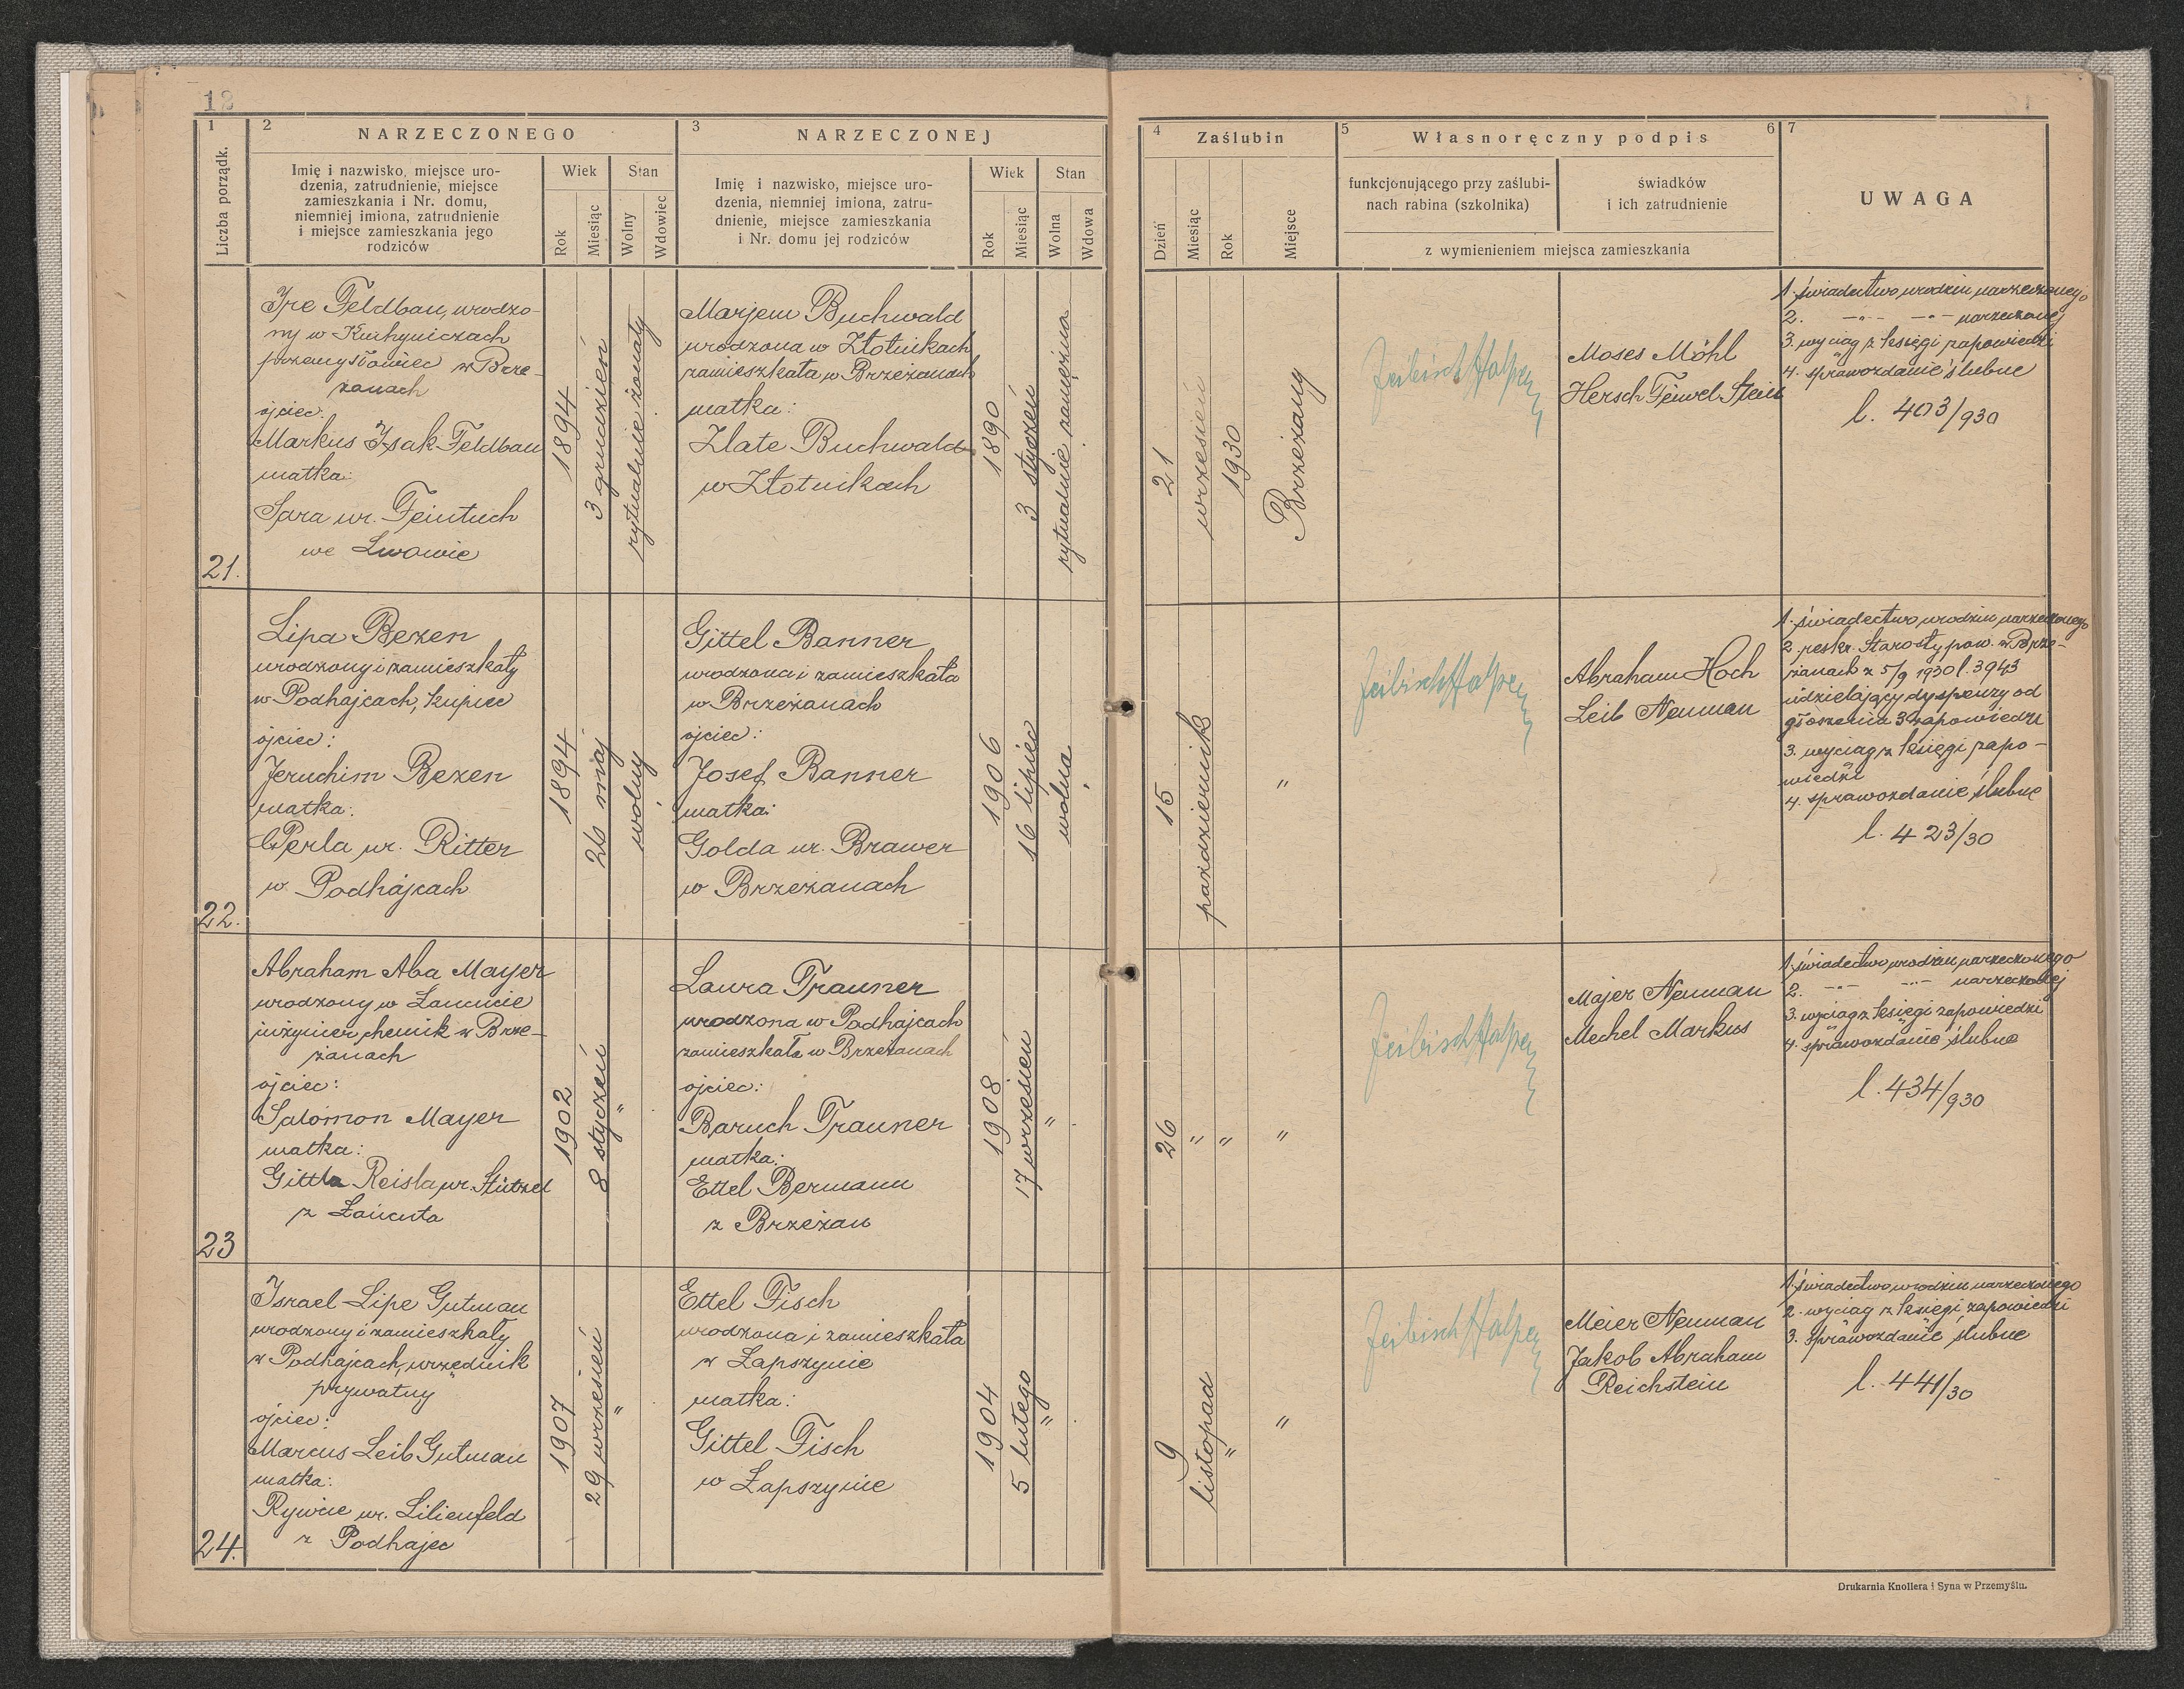 18
1
2
NARZECZONEGO
3
NARZECZONEJ
Liczba porządk.
Imię i nazwisko, miejsce uro-
dzenia, zatrudnienie, miejsce
zamieszkania i Nr. domu,
niemniej imiona, zatrudnienie
i miejsce zamieszkania jego
rodziców
Wiek
Stan
Rok
Miesiąc
Wolny
Wdowiec
Imię i nazwisko, miejsce uro-
dzenia, niemniej imiona, zatru-
dnienie, miejsce zamieszkania
i Nr. domu jej rodziców
Wiek
Stan
Rok
Miesiąc
Wolna
Wdowa
4
Zaślubin
5
Własnoręczny podpis
6
7
Dzień
Miesiąc
Rok
Miejsce
funkcjonującego przy zaślubi-
nach rabina (szkolnika)
świadków
i ich zatrudnienie
z wymienieniem miejsca zamieszkania
UWAGA
21.
Feldbau, urodzo-
ny w
przemysłowiec w Brze-
żanach
ojciec:
Markus Isak Feldbau
matka:
Sara ur. Feintuch
we Lwowie
1894
3 grudzień
rytualnie żonaty
Marjem Buchwald
urodzona w Złotnikach
zamieszkała w Brzeżanach
matka:
Zlate Buchwald
w Złotnikach
1890
3 styczeń
rytualnie zamężna
21
wrzesień
1930
Brzeżany
Moses Möhl
Hersch Feiwel Stein
1. świadectwo urodzin narzeczonego
2. -"- -"- narzeczonej
3. wyciąg z księgi zapowiedzi
4. sprawozdanie ślubne
l. 403/930
22.
Lipa Bezen
urodzony i zamieszkały
w Podhajcach, kupiec
ojciec:
Jeruchim Bezen
matka:
Perla ur. Ritter
w Podhajcach
1894
26 maj
wolny
Gittel Banner
urodzona i zamieszkała
w Brzeżanach
ojciec:
Josef Banner
matka:
Golda ur. Brawer
w Brzeżanach
1906
16 lipiec
wolna
15
październik
"
Abraham Hoch
Leib Neuman
1. świadectwo urodzin narzeczonego
2. reskr. Starosty pow. w Brze-
żanach z 5/9 1930 l. 3943
udzielający dyspenzy od
głoszenia 3 zapowiedzi
3. wyciąg z księgi zapo-
wiedzi
4. sprawozdanie ślubne
l. 423/30
23
Abraham Aba Mayer
urodzony w Łańcucie
inżynier chemik w Brze-
żanach
ojciec:
Salomon Mayer
matka:
Gittla Reisla ur.
z Łańcuta
1902
8 styczeń
"
Laura Trauner
urodzona w Podhajcach
zamieszkała w Brzeżanach
ojciec:
Baruch Trauner
matka:
Ettel Bermann
z Brzeżan
1908
17 wrzesień
"
26
"
"
"
Majer Neuman
Mechel Markus
1. świadectwo urodzin narzeczonego
2. -"- -"- narzeczonej
3. wyciąg z księgi zapowiedzi
4. sprawozdanie ślubne
l. 434/930
24.
Israel Lipe Gutman
urodzony i zamieszkały
w Podhajcach, urzędnik
prywatny
ojciec:
Marcus Leib Gutman
matka:
Rywcie ur. Lilienfeld
z Podhajec
1907
29 wrzesień
"
Ettel Fisch
urodzona i zamieszkała
w Łapszynie
matka:
Gittel Fisch
w Łapszynie
1904
5 lutego
"
9
listopad
"
"
Meier Neuman
Jakob Abraham
Reichstein
1. świadectwo urodzin narzeczonego
2. wyciąg z księgi zapowiedzi
3. sprawozdanie ślubne
l. 441/30
Drukarnia Knollera i Syna w Przemyślu.